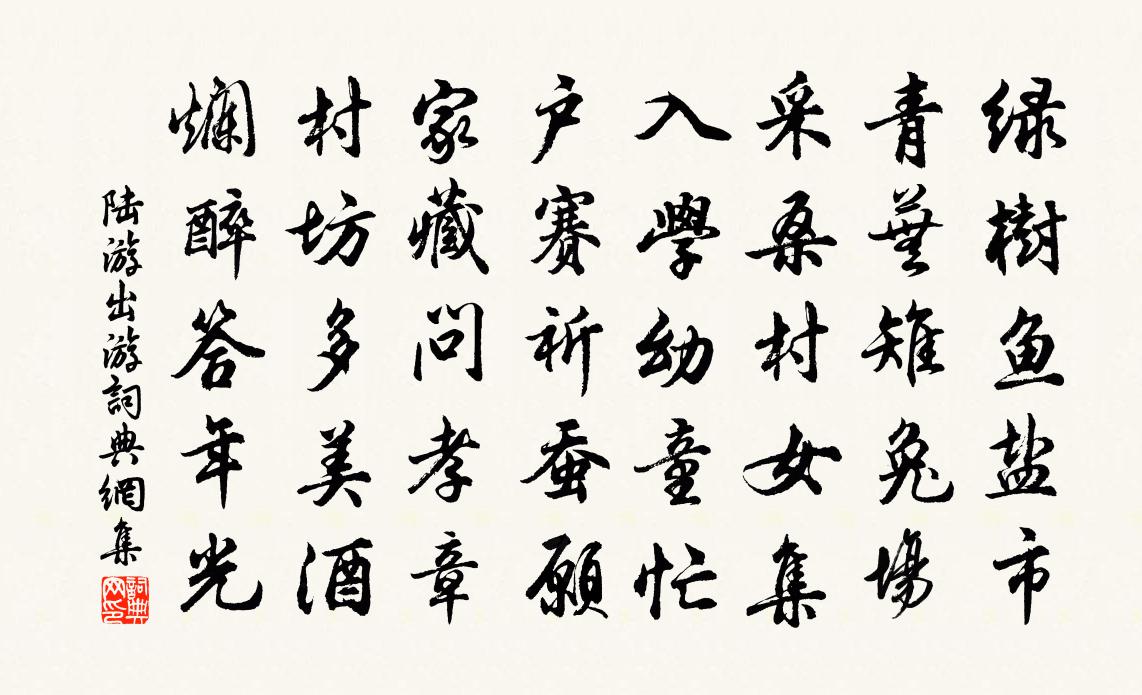 绿樹鱼盐市
青蕪雉兔場
采桑村女集
入學幼童忙
户賽祈蚕願
家藏問孝章
村坊多美酒
爛醉答年光
陆游出游詞典網集
詞典网印